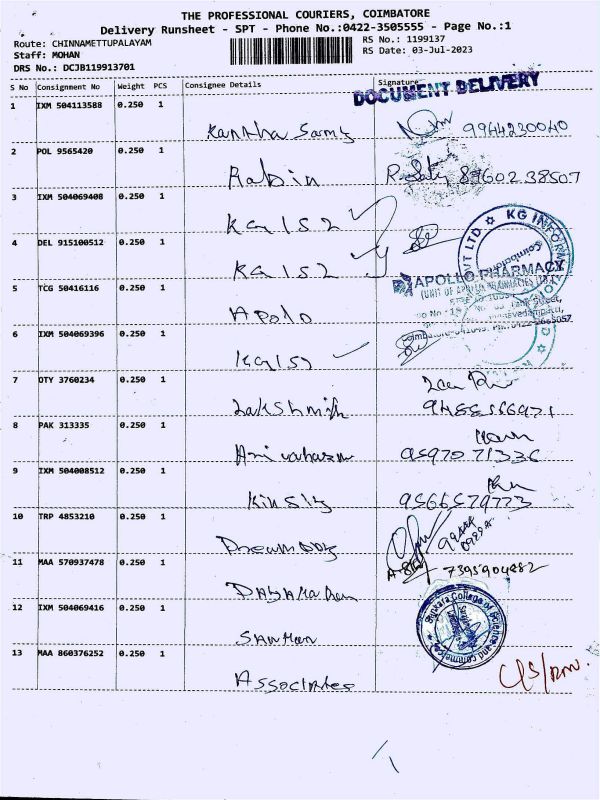 THE PROFESSIONAL COURIERS, COIMBATORE
Delivery Runsheet - SPT - Phone No.:0422-3505555 - Page No.:1
Route: CHINNAMETTUPALAYAM
RS No.: 1199137
Staff: MOHAN
RS Date: 03-Jul-2023
DRS No.: DCJB119913701
S No Consignment No Weight PCS Consignee Details Signature
DOCUMENT DELIVERY
1 IXM 504113588 0.250 1
Kantha Samy 9944230040
2 POL 9565420 0.250 1
Rabin
3 IXM 504069408 0.250 1
KGISL
4 DEL 915100512 0.250 1
KGISL
KG INFORM
PVT LTD
Coimbatore
APOLLO PHARMACY
5 TCG 50416116 0.250 1
Apolo
6 IXM 504069396 0.250 1
KGISL
7 OTY 3760234 0.250 1
Lakshmi
8 PAK 313335 0.250 1
95970 71336
9 IXM 504008512 0.250 1
Kinsly 9566579773
10 TRP 4853210 0.250 1
11 MAA 570937478 0.250 1
7395904882
12 IXM 504069416 0.250 1
Sankara College of Science and Commerce
13 MAA 860376252 0.250 1
Associates